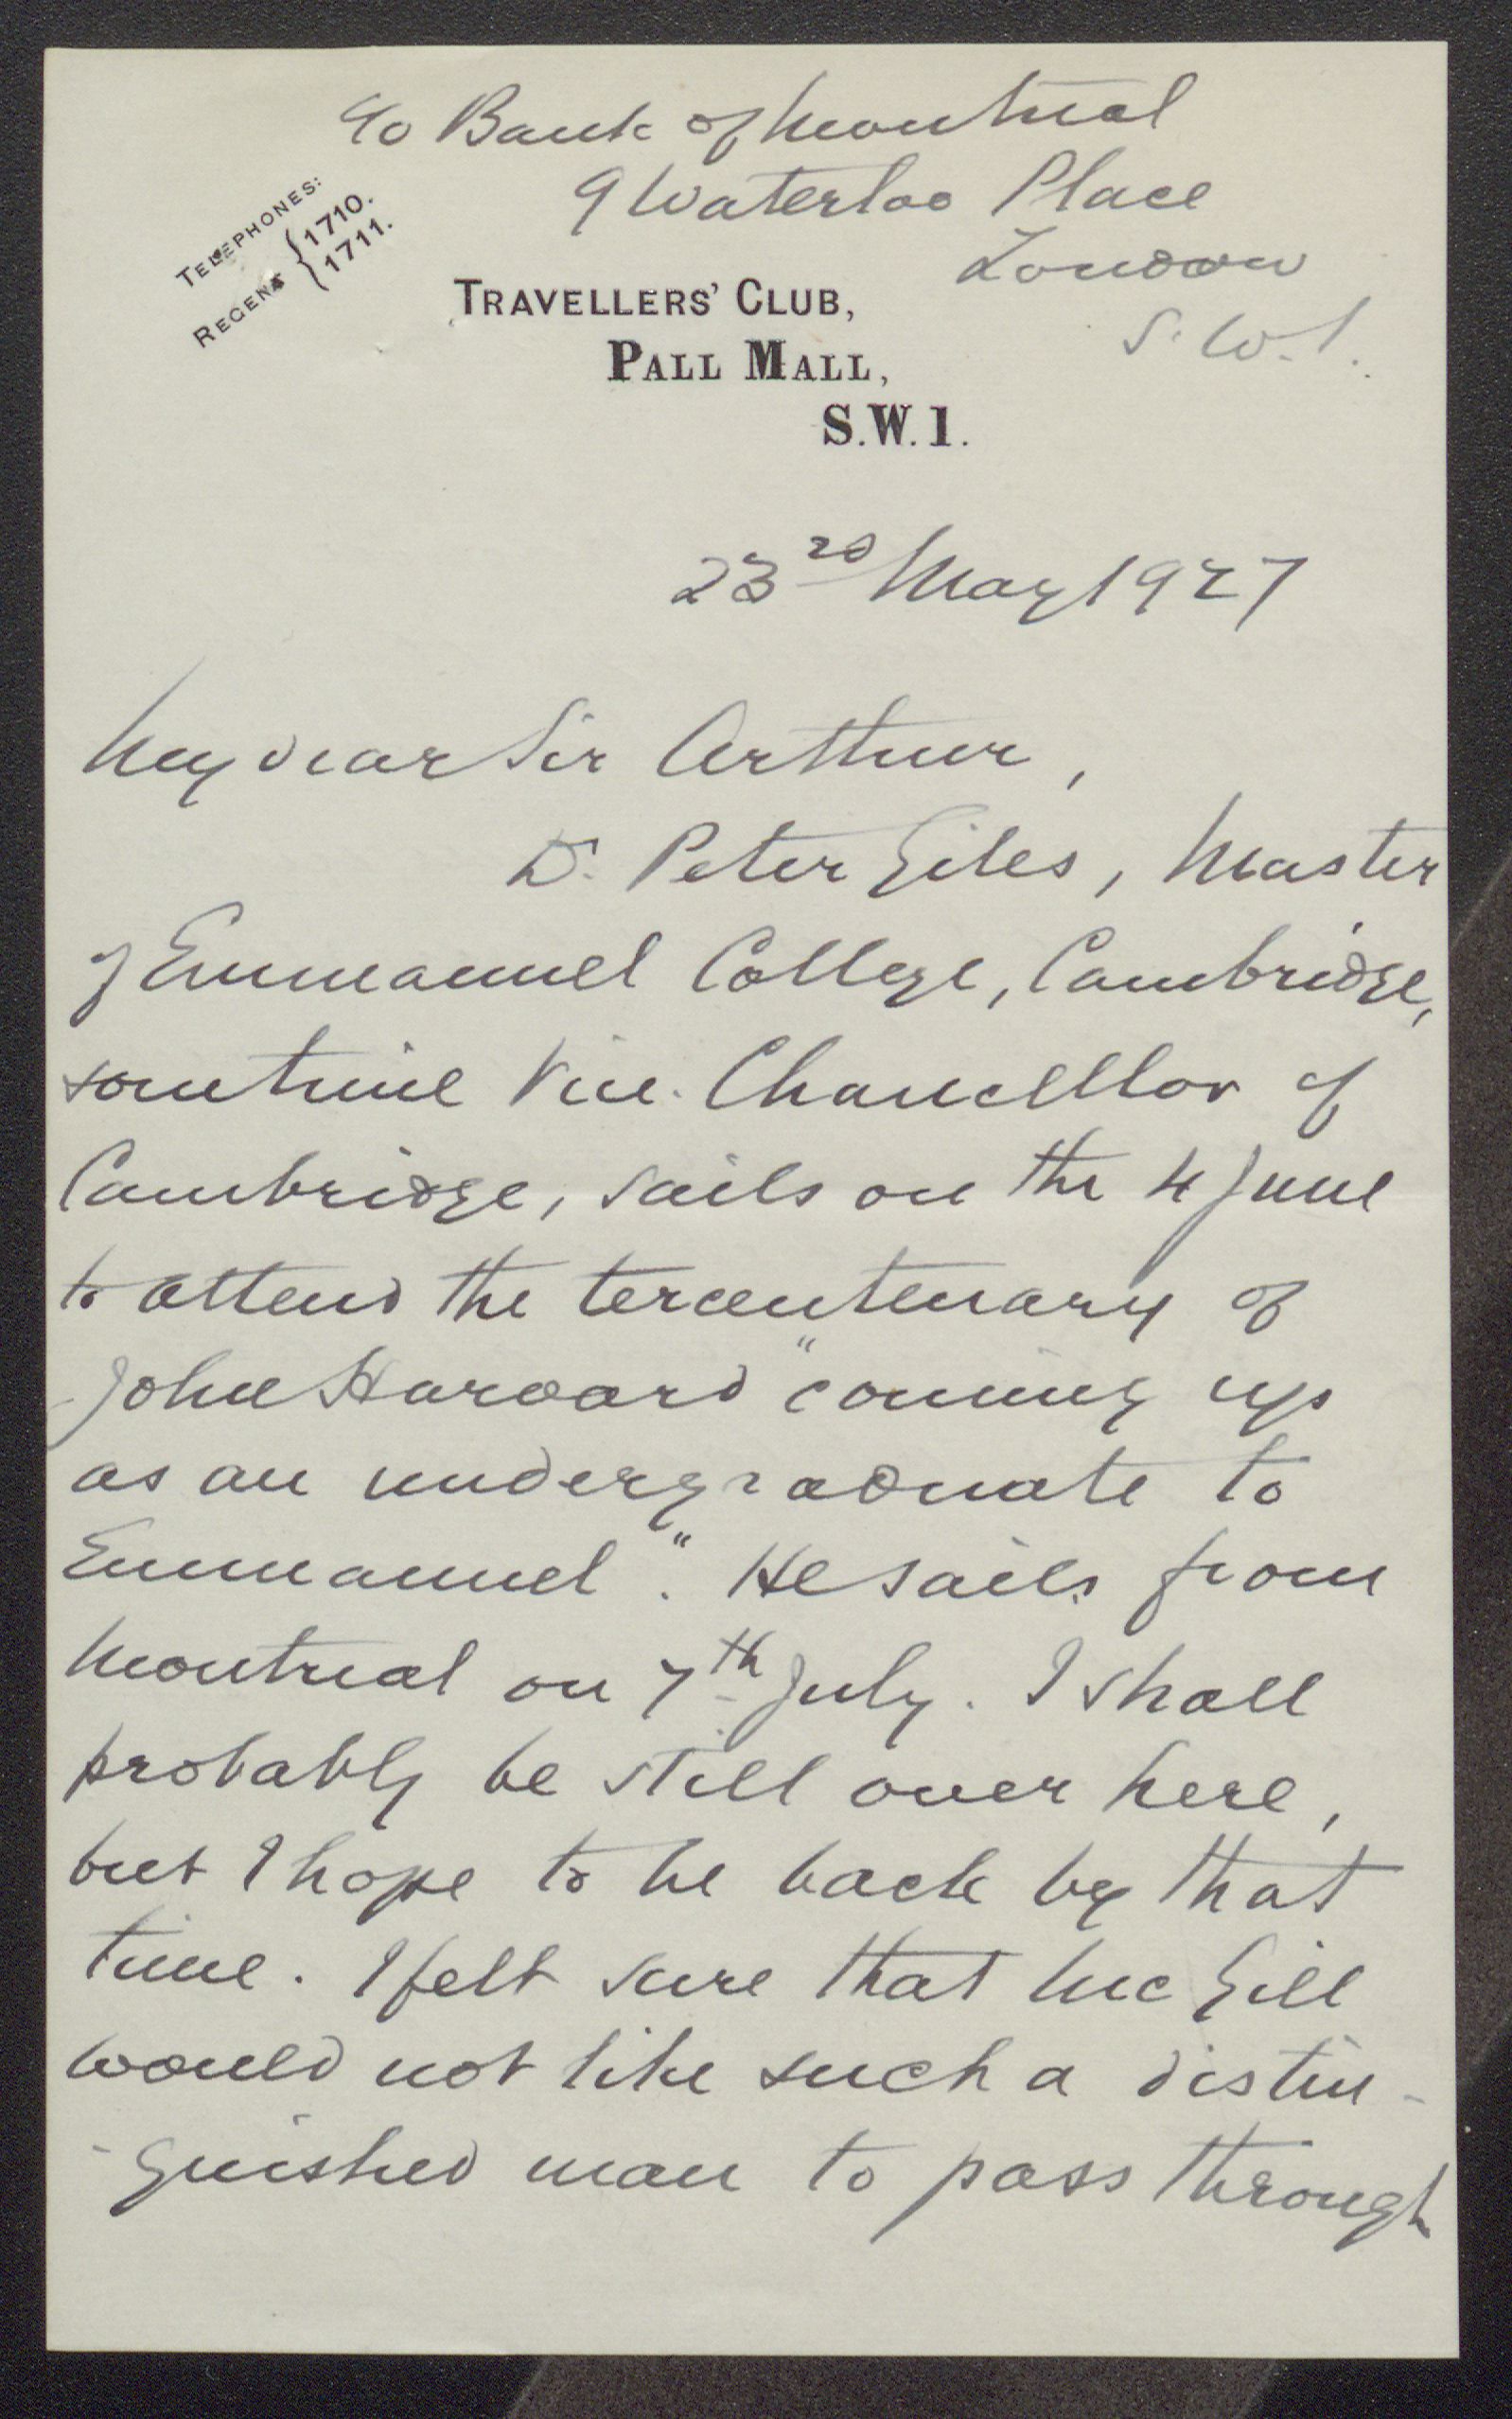 c/o Bank of Montreal
9 Waterloo Place
London
S.W.1.
TELEPHONES:
REGENT {1710.
1711.
TRAVELLERS' CLUB,
PALL MALL,
S.W.1.
23rd May 1927
My dear Sir Arthur,
Dr. Peter Giles, Master
of Emmanuel College, Cambridge,
sometime Vice-Chancellor of
Cambridge, sails on the 4 June
to attend the tercentenary of
John Harvard "coming up
as an undergraduate to
Emmanuel". He sails from
Montreal on 7th July. I shall
probably be still over here,
but I hope to be back by that
time. I felt sure that McGill
would not like such a distin-
-guished man to pass through